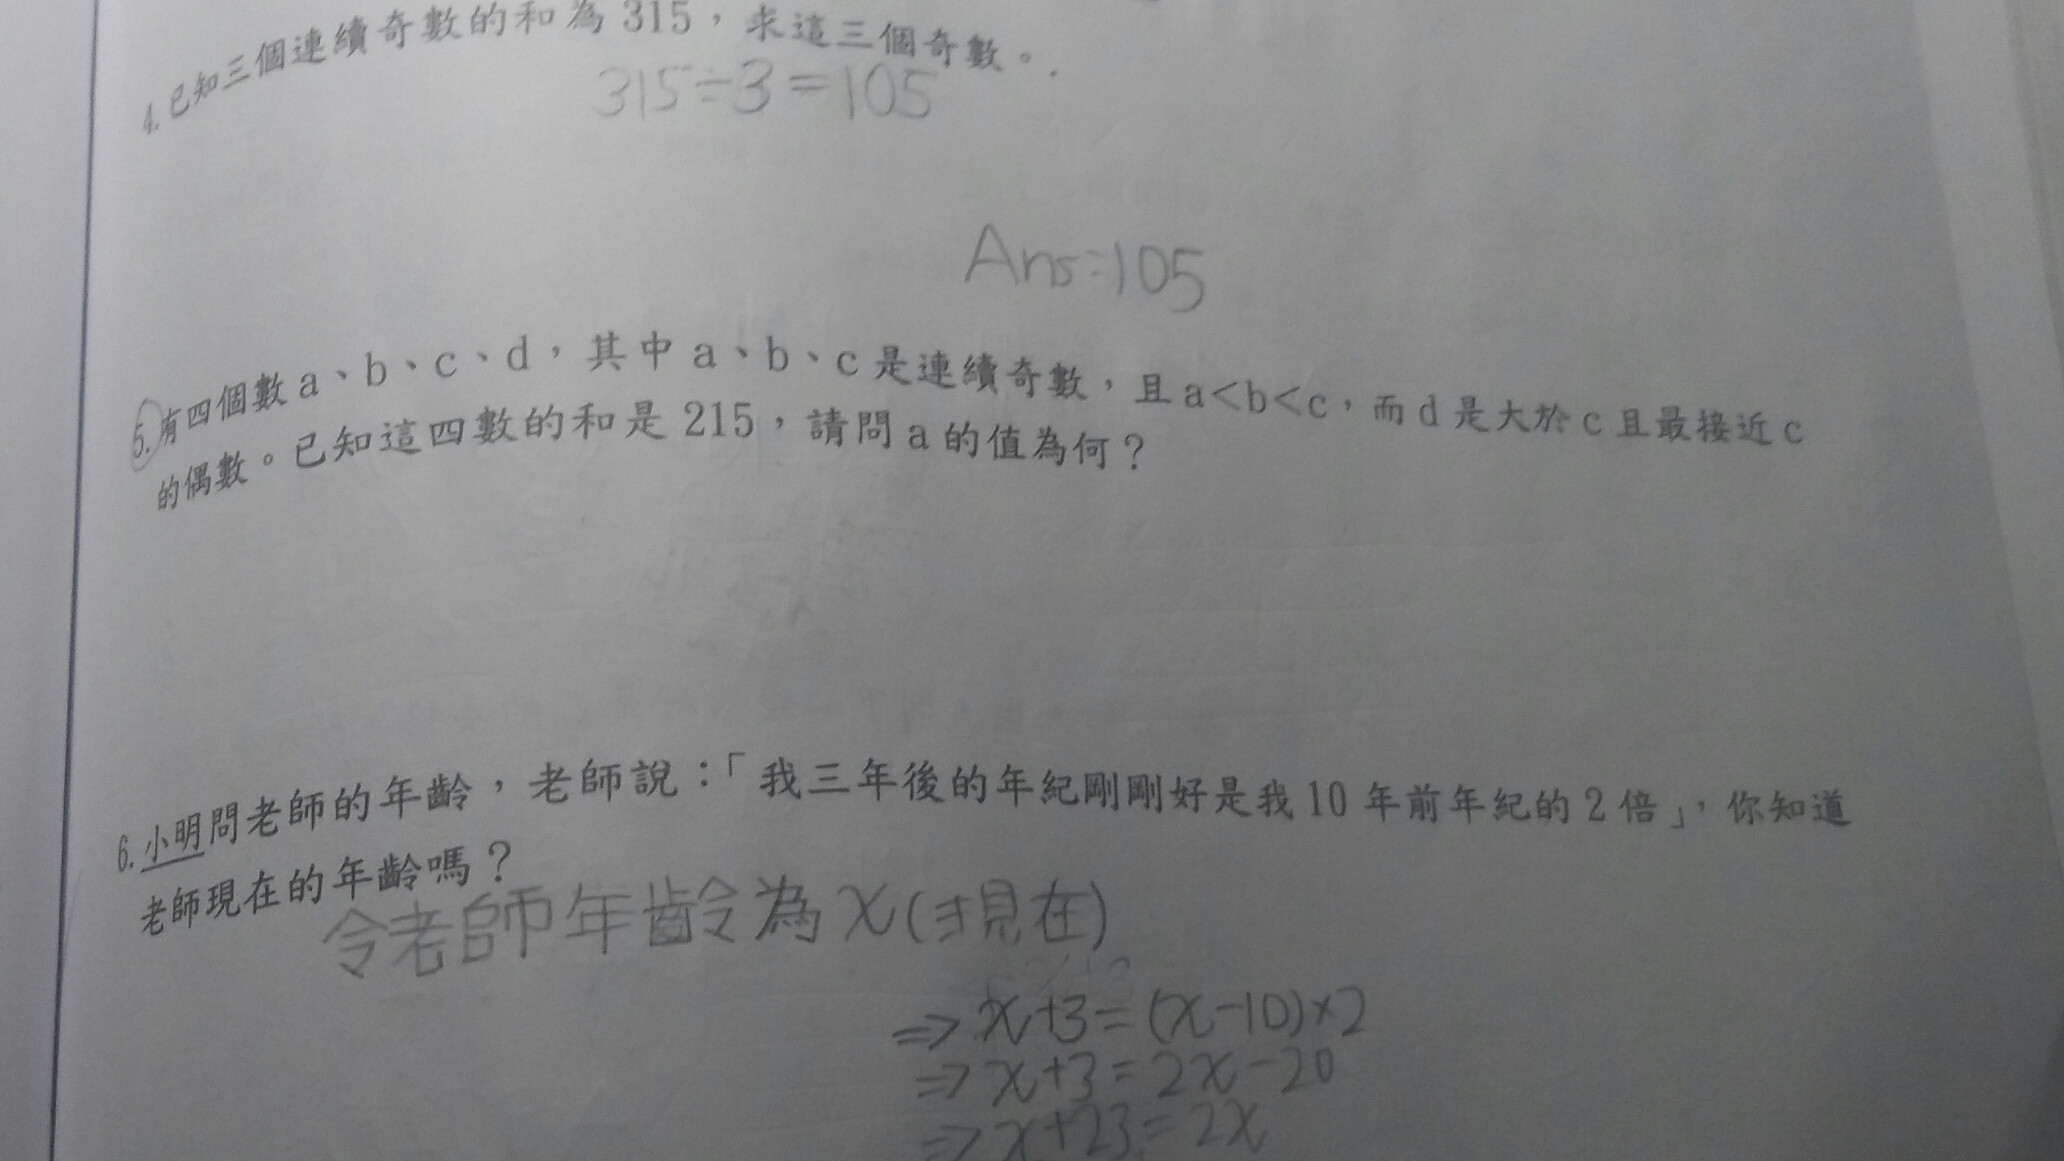 4. 已知三個連續奇數的和為 315，求這三個奇數。
315÷3=105
Ans:105
5. 有四個數 a、b、c、d，其中 a、b、c 是連續奇數，且 a<b<c，而 d 是大於 c 且最接近 c
的偶數。已知這四數的和是 215，請問 a 的值為何？
6. 小明問老師的年齡，老師說：「我三年後的年紀剛剛好是我 10 年前年紀的 2 倍」，你知道
老師現在的年齡嗎？
令老師年齡為 x (現在)
⇒ x+3=(x-10)×2
⇒ x+3=2x-20
⇒ x+23=2x